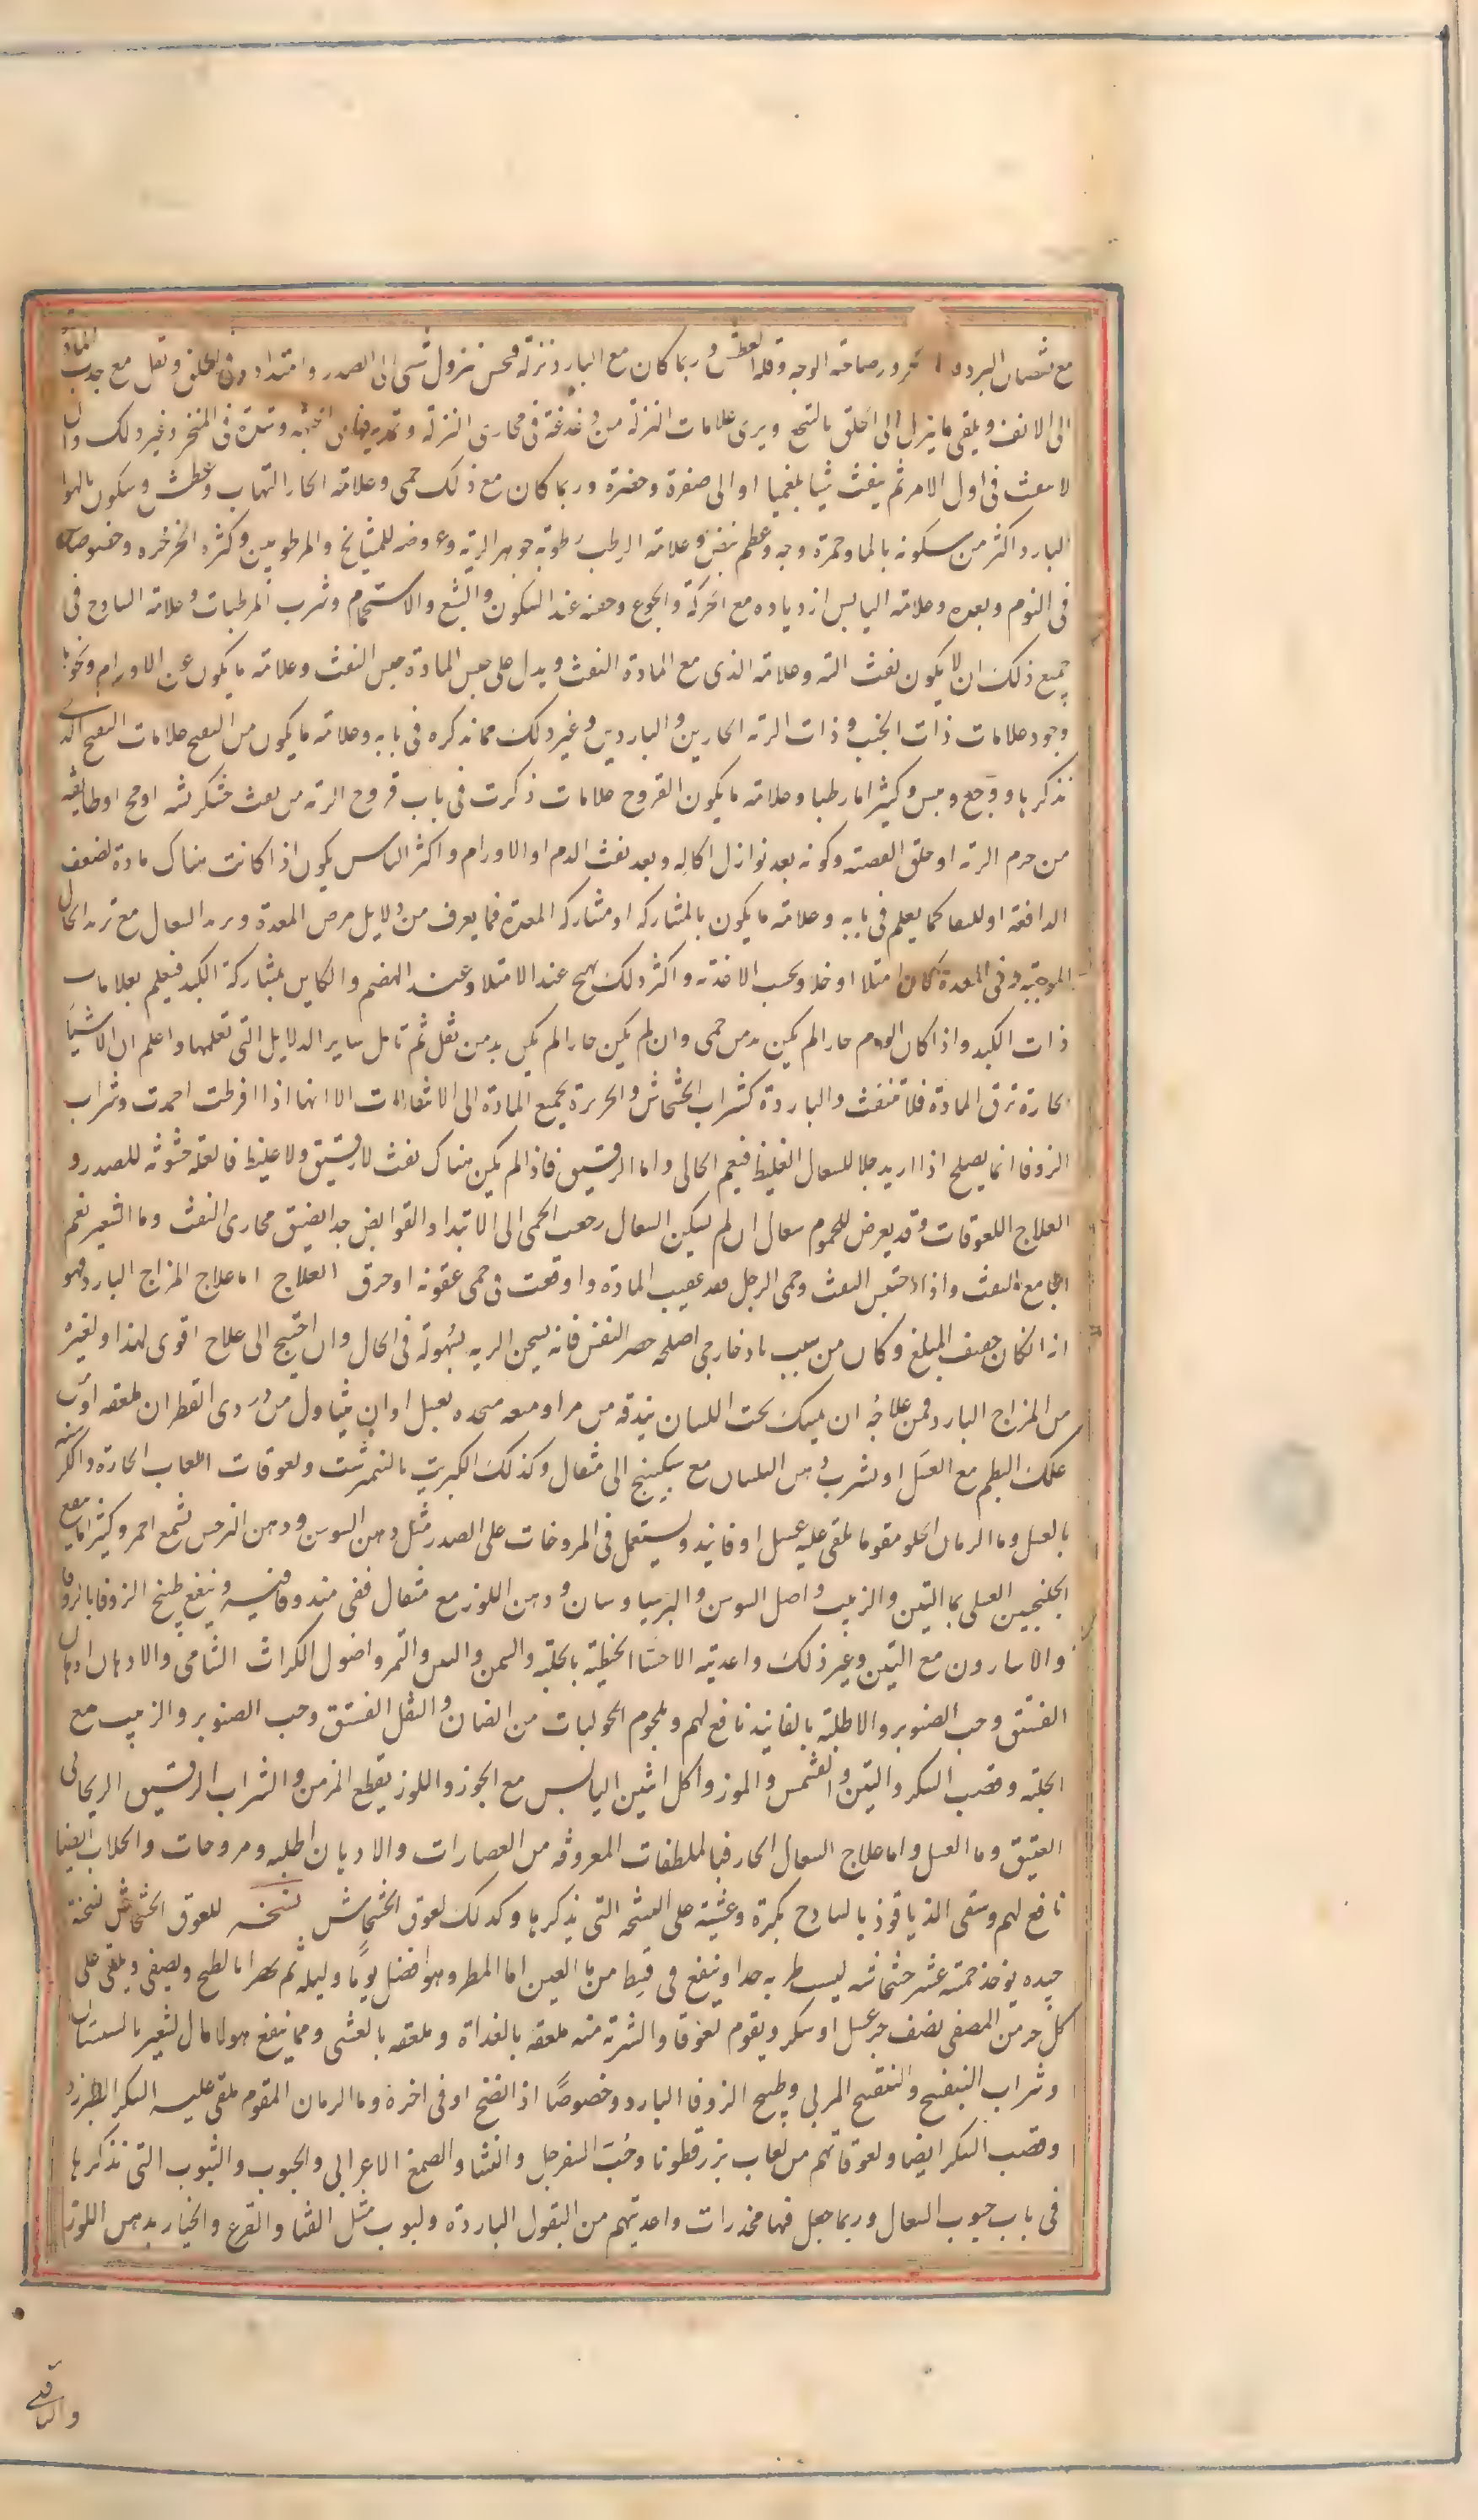 مع نقصان البرد و الحر ورصاصة الوجه وقلة العطش وربما كان مع البارد نزلة فيحس نزول شىء الى الصدر وامتداد فى الحلق ويقل مع جذب المادة
الى الانف ويلقى ما ينزل الى الحلق بالتنحنح ويرى علامات النزلة من دغدغة فى مجارى النزلة و تمدد فيما يلى الجبهة وسدة فى المنخر وغير ذلك وان
لا ينفث فى اول الامر ثم ينفث شيا بلغميا او الى صفرة وخضرة وربما كان مع ذلك حمى وعلامة الحار التهاب وعطش وسكون بالهوا
البارد اكثر من سكونه بالما وحمرة وجه وعظم نبض وعلامة الرطب رطوبة جوهر الرية وعروضه للمشايخ والمرطوبين وكثرة الخرخرة وخصوصا
فى النوم وبعده وعلامة اليابس ازدياده مع الحركة والجوع وخفته عند السكون والشبع والاستحمام وشرب المرطبات وعلامة الساذج فى
جميع ذلك ان لا يكون نفث البتة وعلامة الذى مع المادة النفث ويدل على جنس المادة جنس النفث وعلامة ما يكون عن الاورام ونحوها
وجود علامات ذات الجنب وذات الرية الحارين والباردين وغير ذلك مما نذكره فى بابه وعلامة ما يكون من التقيح علامات التقيح الذى
نذكرها ووجع ويبس وكثيرا ما رطبا وعلامة ما يكون القروح علامات ذكرت فى باب قروح الرية من نفث خشكريشة او قيح او طايفة
من جرم الرية او حلق القصبة وكونه بعد نوازل اكالة وبعد نفث الدم والاورام واكثر اليابس يكون اذا كانت هناك مادة لضعف
الدافعة او للسعا كما يعلم فى بابه وعلامة ما يكون بالمشاركة او مشاركة المعدة فما يعرف من دلايل مرض المعدة ويزيد السعال مع تزيد الحال
الموجبة له فى المعدة كان امتلا او خلا وبحسب الاغذية واكثر ذلك يهيج عند الامتلا وعند الهضم والكاين بمشاركة الكبد فيعلم بعلامات
ذات الكبد واذا كان الورم حارا لم يكن بد من حمى وان لم يكن حارا لم يكن بد من ثقل ثم تامل ساير الدلايل التى تعلمها واعلم ان الاشيا
الحارة ترق المادة فلا تنفث والباردة كشراب الخشخاش والحريرة يجمع المادة الى الانتفاث الا انها اذا افرطت اجمدت وشراب
الزوفا انما يصلح اذا اريد جلا للسعال الغليظ فنعم الجالى واما الرقيق فاذا لم يكن هناك نفث لا رقيق ولا غليظ فالعلة خشونة للصدر و
العلاج اللعوقات وقد يعرض للمحموم سعال ان لم يسكن السعال رجعت الحمى الى الابتدا والقوابض جدا يضيق مجارى النفث وما الشعير نعم
الجامع للنفث واذا احتبس النفث وحمى الرجل فقد عفنت المادة واوقعت فى حمى عفونة او حرق العلاج اما علاج المزاج البارد فهو
انه اذا كان ضعيف المبلغ وكان من سبب باد خارجى اصلحه حصر النفس فانه يسخن الرية بسهولة فى الحال وان احتيج الى علاج اقوى لهذا ولغيره
من المزاج البارد فمن علاجه ان يمسك تحت اللسان بندقة من مر او ميعة متخذة بعسل او ان يتناول من دردى القطران ملعقة او من
علك البطم مع العسل او يشرب دهن البلسان مع سكبينج الى مثقال وكذلك الكبريت بالنمبرشت ولعوقات اللعاب الحارة والكرسنه
بالعسل وما الرمان الحلو مقوما يلقى عليه عسل او فانيد ويستعمل فى المروخات على الصدر مثل دهن السوسن ودهن النرجس بشمع احمر وكثيرا ما ينفع
الجلنجبين العسلى بما التين والزبيب واصل السوسن والبرسياوسان ودهن اللوز مع مثقال ففى مندوفانيد وينفع طبيخ الزوفا بالزوفا
والاسارون مع التين وغير ذلك واغذيته الاحسا الحنطية بالحلبة والسمن واللبن والتمر واصول الكراث الشامى والادهان ادهان
الفستق وحب الصنوبر والاطلبة بالفانيد نافع لهم ولحوم الحوليات من الضان والنقل الفستق وحب الصنوبر والزبيب مع
الحلبة وقصب السكر والتين والمشمش والموز واكل التين اليابس مع الجوز واللوز يقطع المزمن والشراب الرقيق الريحانى
العتيق وما العسل واما علاج السعال الحار فبالملطفات المعروفة من العصارات والادهان اطلية ومروخات والجلاب ايضا
نافع لهم وسقى الدياقوذ بالساذج بكرة وعشية على النسخة التى نذكرها وكذلك لعوق الخشخاش نسخه للعوق الخشخاش نسخة
جيده يوخذ خمسة عشر خشخاشة ليست طرية جدا وينقع فى قسط من ما العين او ما المطر وهو افضل يوما وليلة ثم يهرا بالطبخ ويصفى ويلقى على
كل جزء من المصفى نصف جزء عسل او سكر ويقوم لعوقا والشربة منه ملعقة بالغداة وملعقة بالعشى ومما ينفع هولا ما الشعير بالسبستان
وشراب البنفسج والبنفسج المربى وطبيخ الزوفا البارد وخصوصا اذا نضج او فى اخره وما الرمان المقوم يلقى عليه السكر الطبرزد
وقصب السكر ايضا ولعوقاتهم من لعاب بزرقطونا وحب السفرجل والنشا والصمغ الاعرابى والحبوب واللبوب التى نذكرها
فى باب حبوب السعال وربما جعل فيها مخدرات واغذيتهم من البقول الباردة ولبوب مثل القثا والقرع والخيار بدهن اللوز
والباقلى